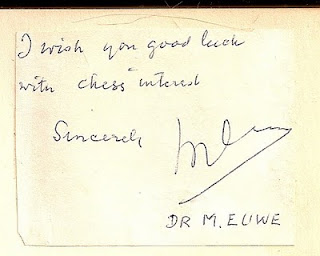 I wish you good luck
with chess interest
Sincerely
DR M. EUWE